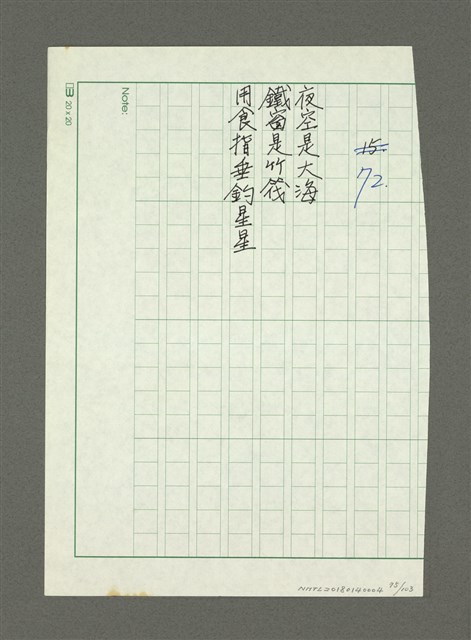 15.
72.
夜空是大海
鐵窗是竹筏
用食指垂釣星星
Note:
20 x 20
NMTL20180140004 75/103